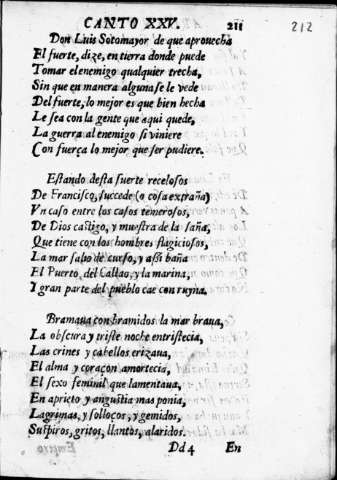 CANTO XXV. 211
212
Don Luis Sotomayor de que aprouecha
El fuerte, dize, en tierra donde puede
Tomar el enemigo qualquier trecha,
Sin que en manera alguna se le vede
Del fuerte, lo mejor es que bien hecha
Le sea con la gente que aqui quede,
La guerra al enemigo si viniere
Con fuerça lo mejor que ser pudiere.
Estando desta suerte recelosos
De Francisco, succede (o cosa extraña)
Vn caso entre los casos temerosos,
De Dios castigo, y muestra de la saña,
Que tiene con los hombres flagiciosos,
La mar salio de curso, y assi baña
El Puerto, del Callao, y la marina,
I gran parte del pueblo cae con ruyna.
Bramaua con bramidos la mar braua,
La obscura y triste noche entristecia,
Las crines y cabellos erizaua,
El alma y coraçon amortecia,
El sexo feminil que lamentaua,
En aprieto y angustia mas ponia,
Lagrimas, y solloços, y gemidos,
Suspiros, gritos, llantos, alaridos.
Dd 4 En